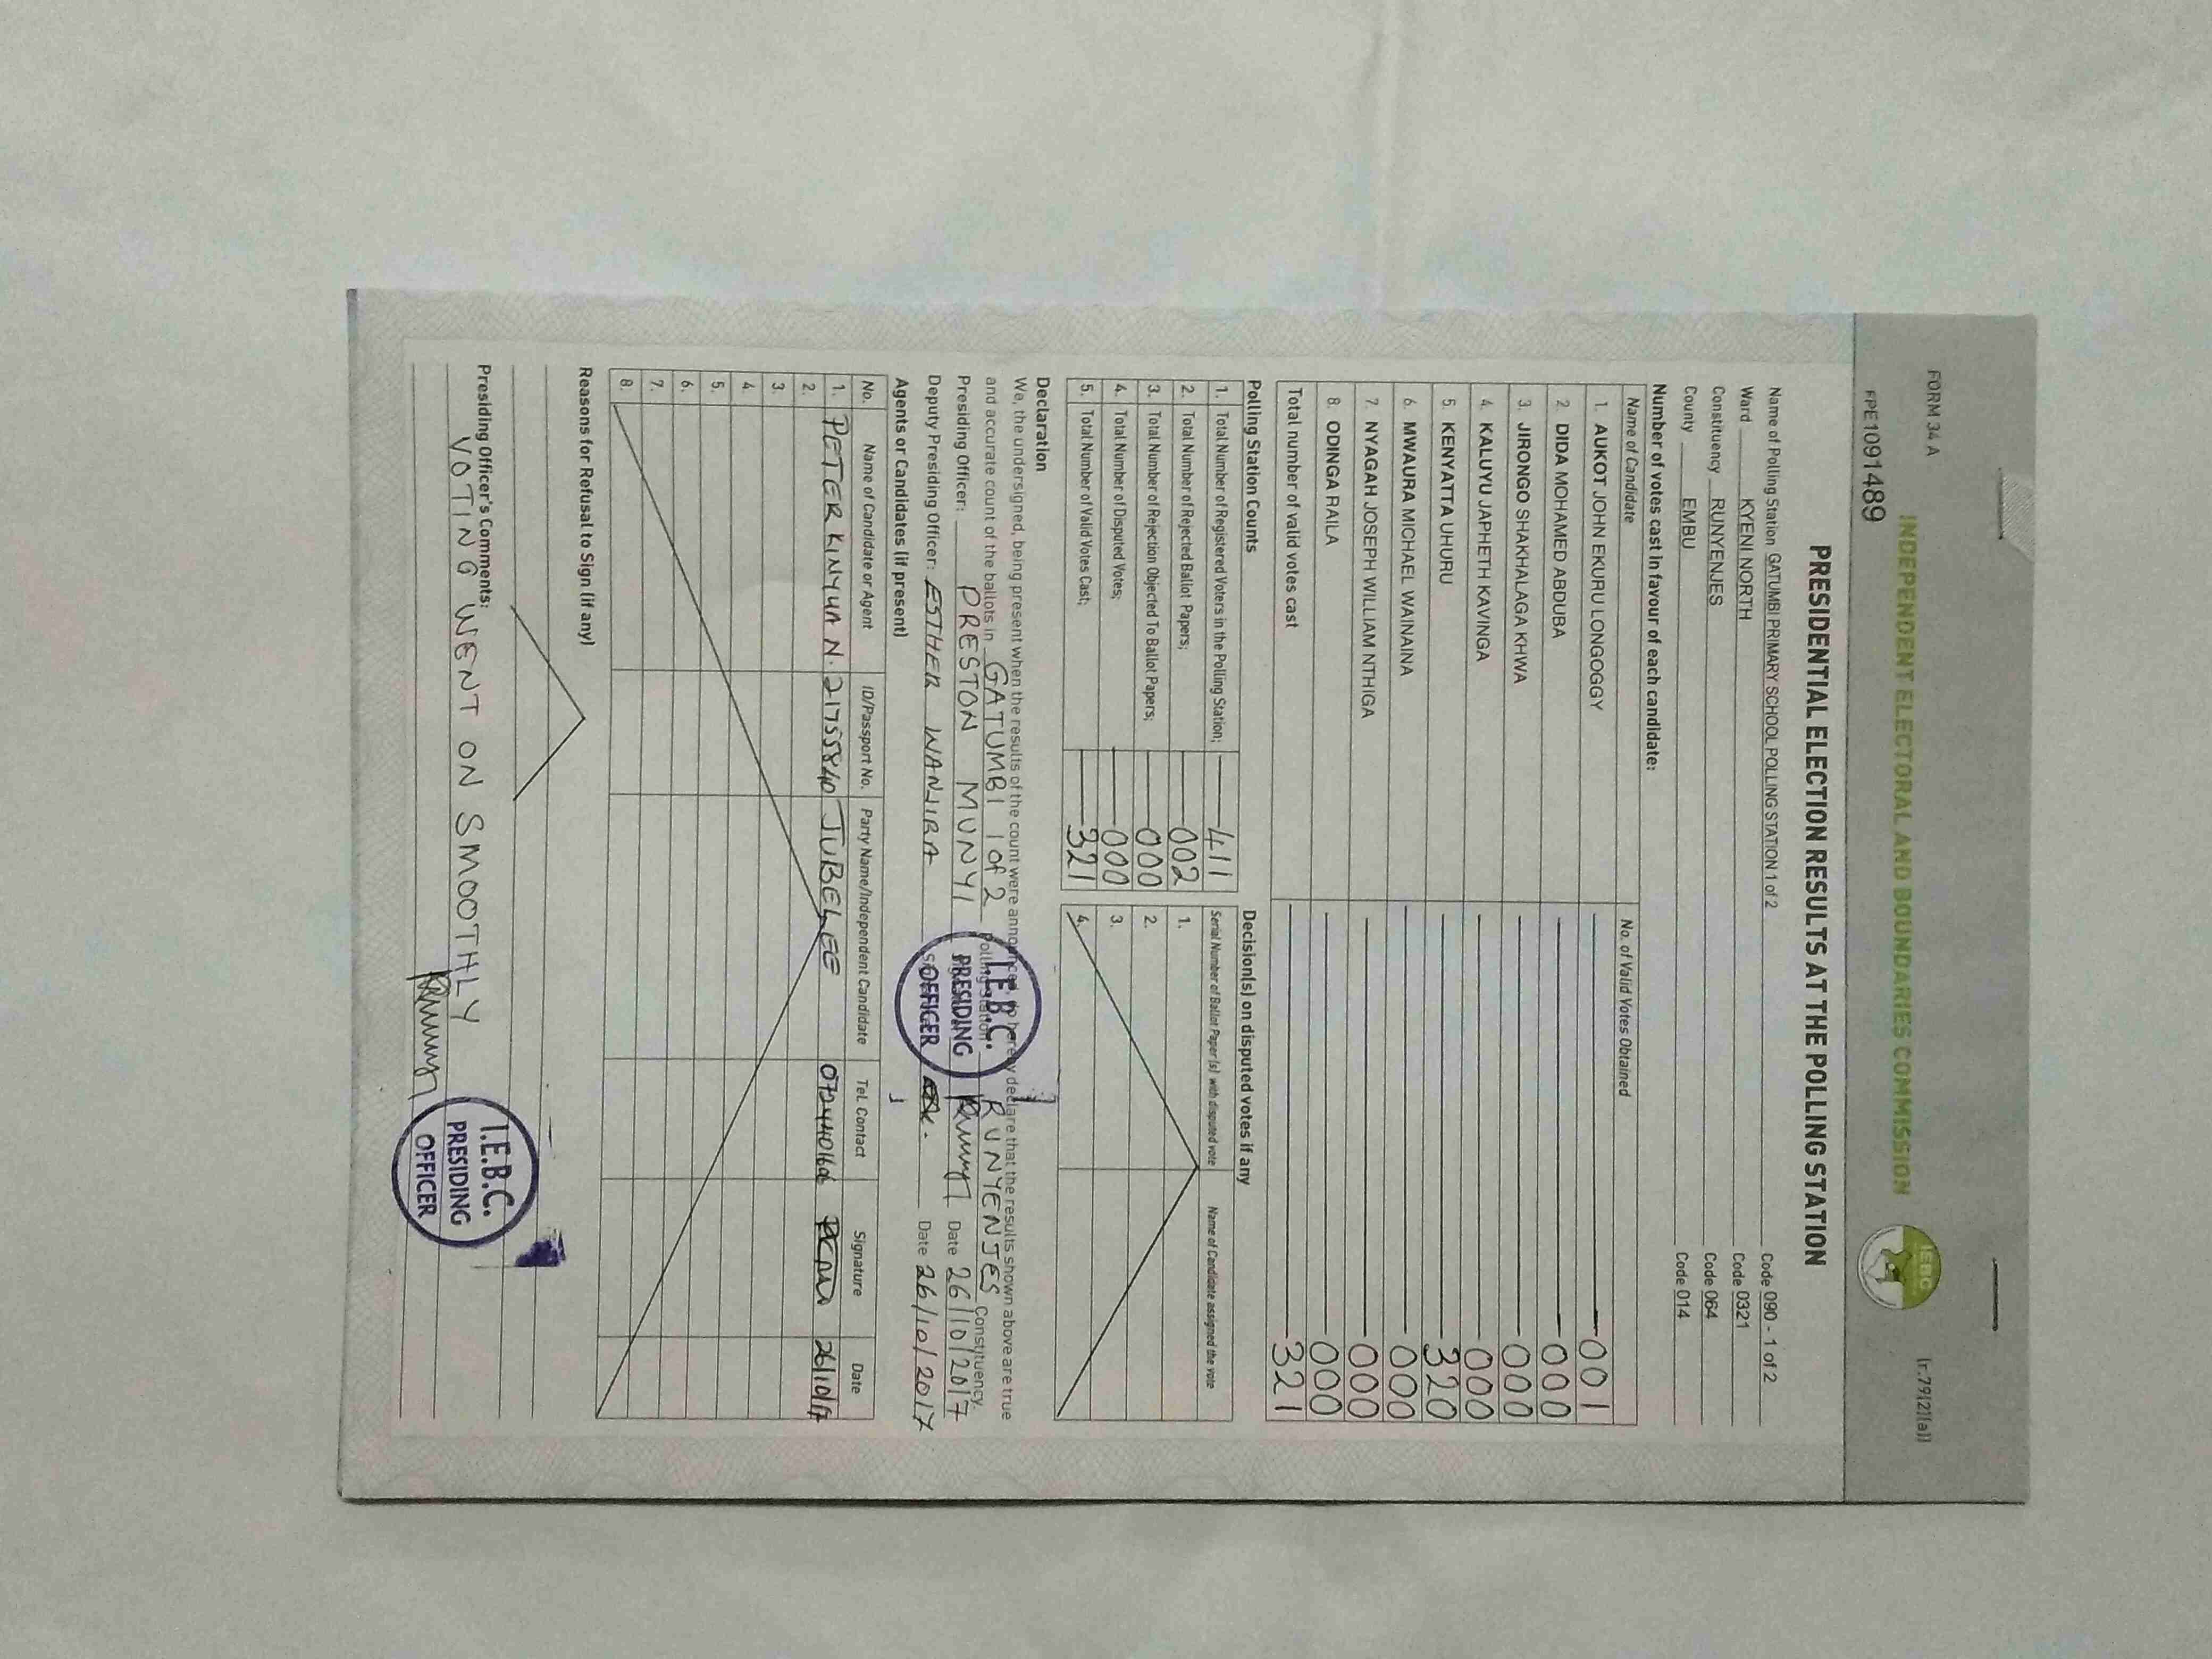 FORM 34 A
(r.79(2)(a))
INDEPENDENT ELECTORAL AND BOUNDARIES COMMISSION
IEBC
FPE1091489
PRESIDENTIAL ELECTION RESULTS AT THE POLLING STATION
Name of Polling Station GATUMBI PRIMARY SCHOOL POLLING STATION 1 of 2 Code 090 - 1 of 2
Ward KYENI NORTH Code 0321
Constituency RUNYENJES Code 064
County EMBU Code 014
Number of votes cast in favour of each candidate:
Name of Candidate No. of Valid Votes Obtained
1. AUKOT JOHN EKURU LONGOGGY 001
2. DIDA MOHAMED ABDUBA 000
3. JIRONGO SHAKHALAGA KHWA 000
4. KALUYU JAPHETH KAVINGA 000
5. KENYATTA UHURU 320
6. MWAURA MICHAEL WAINAINA 000
7. NYAGAH JOSEPH WILLIAM NTHIGA 000
8. ODINGA RAILA 000
Total number of valid votes cast 321
Polling Station Counts
1. Total Number of Registered Voters in the Polling Station; 411
2. Total Number of Rejected Ballot Papers; 002
3. Total Number of Rejection Objected To Ballot Papers; 000
4. Total Number of Disputed Votes; 000
5. Total Number of Valid Votes Cast; 321
Decision(s) on disputed votes if any
Serial Number of Ballot Paper (s) with disputed vote Name of Candidate assigned the vote
1.
2.
3.
4.
Declaration
We, the undersigned, being present when the results of the count were announced, do hereby declare that the results shown above are true
and accurate count of the ballots in GATUMBI 1 of 2 Polling station RUNYENJES Constituency.
Presiding Officer: PRESTON MUNYI Date 26/10/2017
Deputy Presiding Officer: ESTHER WANJIRA Date 26/10/2017
I.E.B.C.
PRESIDING
OFFICER
Agents or Candidates (if present)
No. Name of Candidate or Agent ID/Passport No. Party Name/Independent Candidate Tel. Contact Signature Date
1. PETER KINYUA N. 21755840 JUBELEE 26/10/17
2.
3.
4.
5.
6.
7.
8.
Reasons for Refusal to Sign (if any)
Presiding Officer's Comments:
VOTING WENT ON SMOOTHLY
I.E.B.C.
PRESIDING
OFFICER